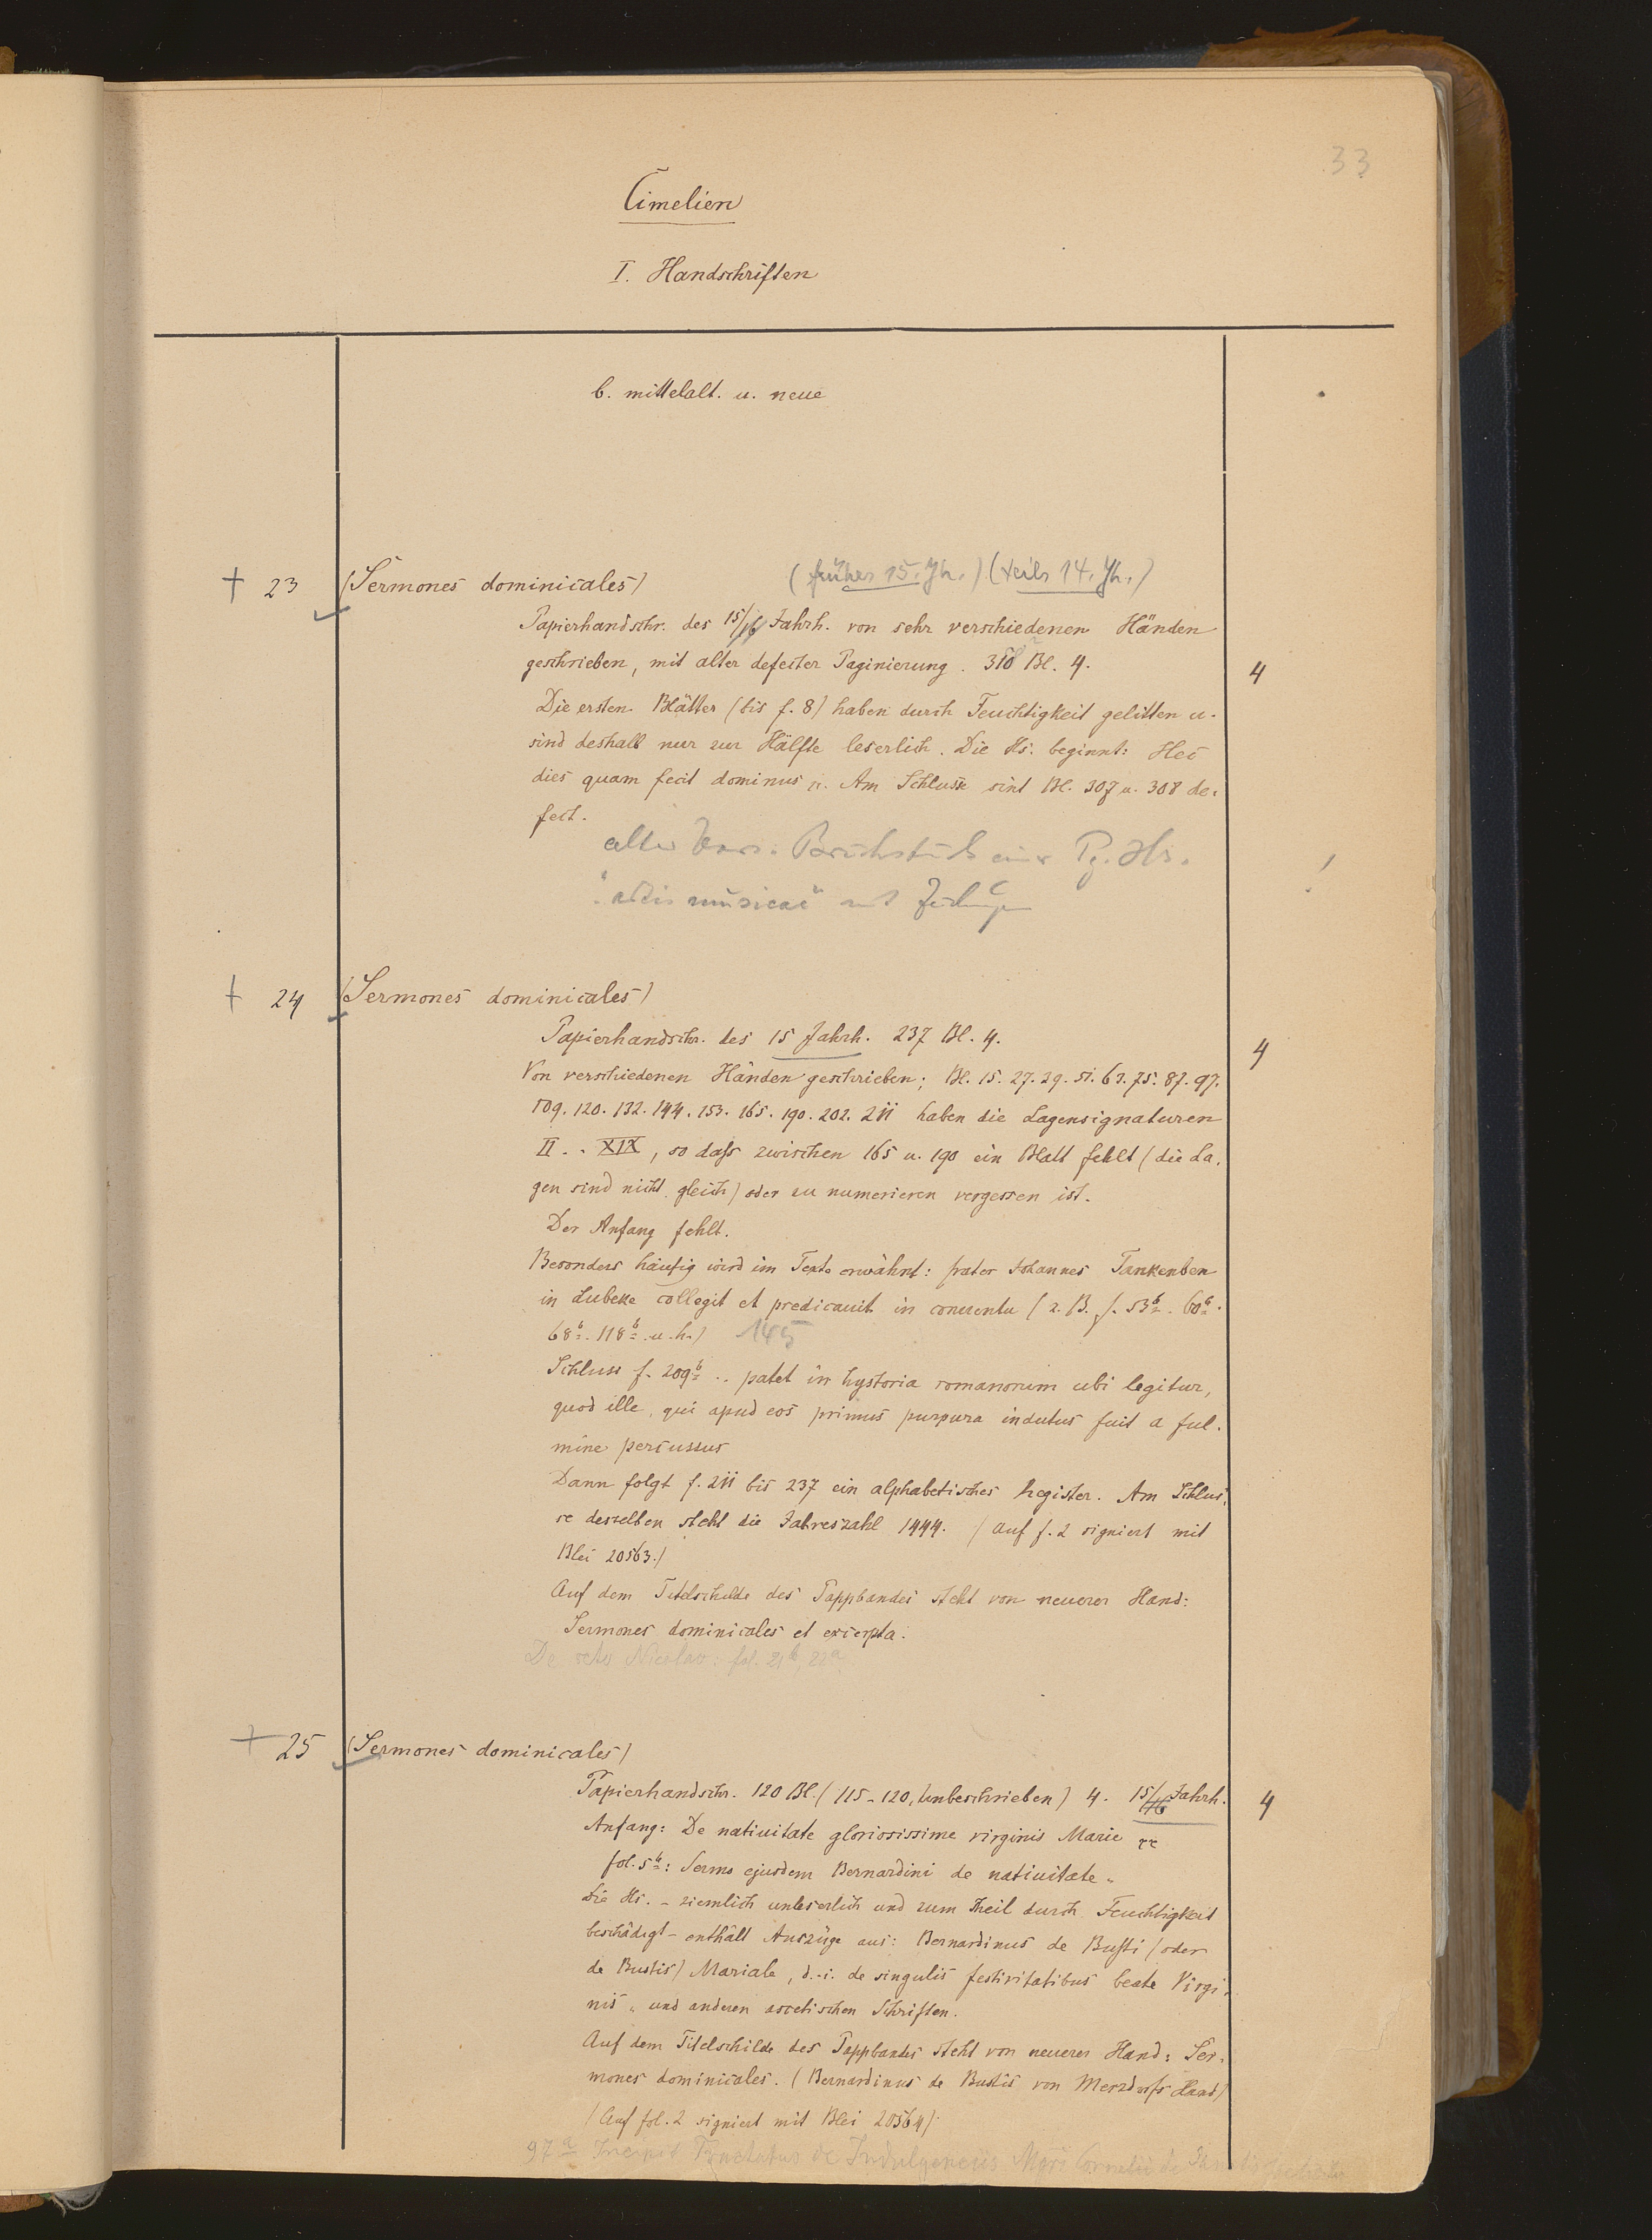 33
Cimelien
I. Handschriften
b. mittelalt. u. neue
+ 23 (Sermones dominicales) (früher 15. Jh.) (teils 14. Jh.)
Papierhandschr. des 15/16 Jahrh. von sehr verschiedenen Händen
geschrieben, mit alter defecter Paginierung. 318 Bl. 4. 4
Die ersten Blätter (bis f. 8) haben durch Feuchtigkeit gelitten u.
sind deshalb nur zur Hälfte leserlich. Die Hs. beginnt: Hec
dies quam fecit dominus rc. Am Schlusse sind Bl. 307 u. 308 de-
fect.
alter Pg. Hs.
musicae
+ 24 (Sermones dominicales)
Papierhandschr. des 15 Jahrh. 237 Bl. 4. 4
Von verschiedenen Händen geschrieben; Bl. 15. 27. 29. 51. 63. 75. 87. 97.
109. 120. 132. 144. 153. 165. 190. 202. 211 haben die Lagensignaturen
II . . XIX, so dass zwischen 165 u. 190 ein Blatt fehlt (die La-
gen sind nicht gleich) oder zu numerieren vergessen ist.
Der Anfang fehlt.
Besonders häufig wird im Texte erwähnt: frater Johannes Tankenben
in Lubeke collegit et predicavit in conventu (z. B. f. 53b. 60b.
68b. 118b. u. h.) 145
Schluss f. 209b .. patet in hystoria romanorum ubi legitur,
quod ille, qui apud eos primus purpura indutus fuit a ful-
mine percussus
Dann folgt f. 211 bis 237 ein alphabetisches Register. Am Schlus-
se desselben steht die Jahreszahl 1444. (Auf f. 2 signiert mit
Blei 20563.)
Auf dem Titelschilde des Pappbandes steht von neuerer Hand:
Sermones dominicales et excerpta.
De scto Nicolao: fol. 21b, 22a
+ 25 (Sermones dominicales)
Papierhandschr. 120 Bl. (115-120, unbeschrieben) 4. 15/16 Jahrh. 4
Anfang: De nativitate gloriosissime virginis Marie rc
fol. 5b: Sermo ejusdem Bernardini de nativitate „
Die Hs. - ziemlich unleserlich und zum Theil durch Feuchtigkeit
beschädigt - enthält Auszüge aus: Bernardinus de Busti (oder
de Bustis) Mariale, d. i. de singulis festivitatibus beate Virgi-
nis „ und anderen ascetischen Schriften.
Auf dem Titelschilde des Pappbandes steht von neuerer Hand: Ser-
mones dominicales. (Bernardinus de Bustis von Merzdorfs Hand)
(Auf fol. 2 signiert mit Blei 20564)
97a Incipit Tractatus de Indulgenciis